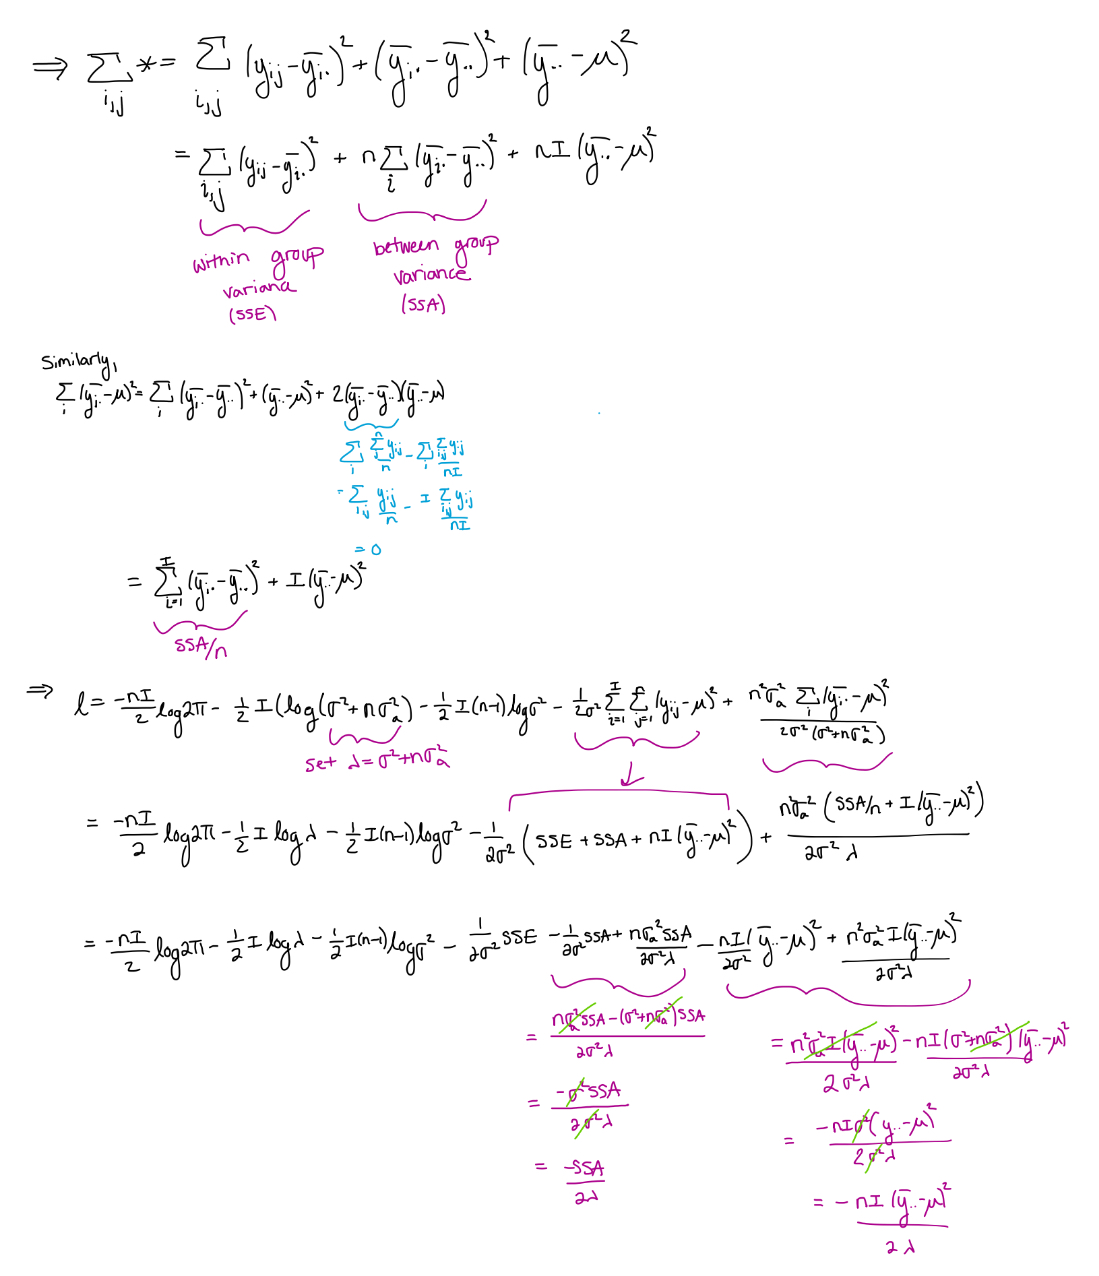 ⇒ Σ_{i,j} * = Σ_{i,j} (y_{ij} - ȳ_{i.})² + (ȳ_{i.} - ȳ_{..})² + (ȳ_{..} - μ)²
= Σ_{i,j} (y_{ij} - ȳ_{i.})² + n Σ_i (ȳ_{i.} - ȳ_{..})² + nI (ȳ_{..} - μ)²
within group variance (SSE)
between group variance (SSA)
Similarly,
Σ_i (ȳ_{i.} - μ)² = Σ_i (ȳ_{i.} - ȳ_{..})² + (ȳ_{..} - μ)² + 2(ȳ_{i.} - ȳ_{..})(ȳ_{..} - μ)
Σ_i Σ_j^n y_{ij} / n - Σ_i Σ_{i,j} y_{ij} / nI
= Σ_{i,j} y_{ij} / n - I Σ_{i,j} y_{ij} / nI
= 0
= Σ_{i=1}^I (ȳ_{i.} - ȳ_{..})² + I (ȳ_{..} - μ)²
SSA/n
⇒ l = -nI/2 log2π - 1/2 I (log(σ² + nσ_a²) - 1/2 I(n-1) log σ² - 1/2σ² Σ_{i=1}^I Σ_{j=1}^n (y_{ij} - μ)² + n²σ_a² Σ_i (ȳ_{i.} - μ)² / 2σ²(σ² + nσ_a²)
set λ = σ² + nσ_a²
= -nI/2 log2π - 1/2 I log λ - 1/2 I(n-1) log σ² - 1/2σ² (SSE + SSA + nI (ȳ_{..} - μ)²) + n²σ_a² (SSA/n + I (ȳ_{..} - μ)²) / 2σ²λ
= -nI/2 log2π - 1/2 I log λ - 1/2 I(n-1) log σ² - 1/2σ² SSE - 1/2σ² SSA + nσ_a² SSA / 2σ²λ - nI/2σ² (ȳ_{..} - μ)² + n²σ_a² I (ȳ_{..} - μ)² / 2σ²λ
= nσ_a² SSA - (σ² + nσ_a²) SSA / 2σ²λ
= -σ² SSA / 2σ²λ
= -SSA / 2λ
= n²σ_a² I (ȳ_{..} - μ)² - nI (σ² + nσ_a²) (ȳ_{..} - μ)² / 2σ²λ 2σ²λ
= -nIσ² (y_{..} - μ)² / 2σ²λ
= -nI (ȳ_{..} - μ)² / 2λ